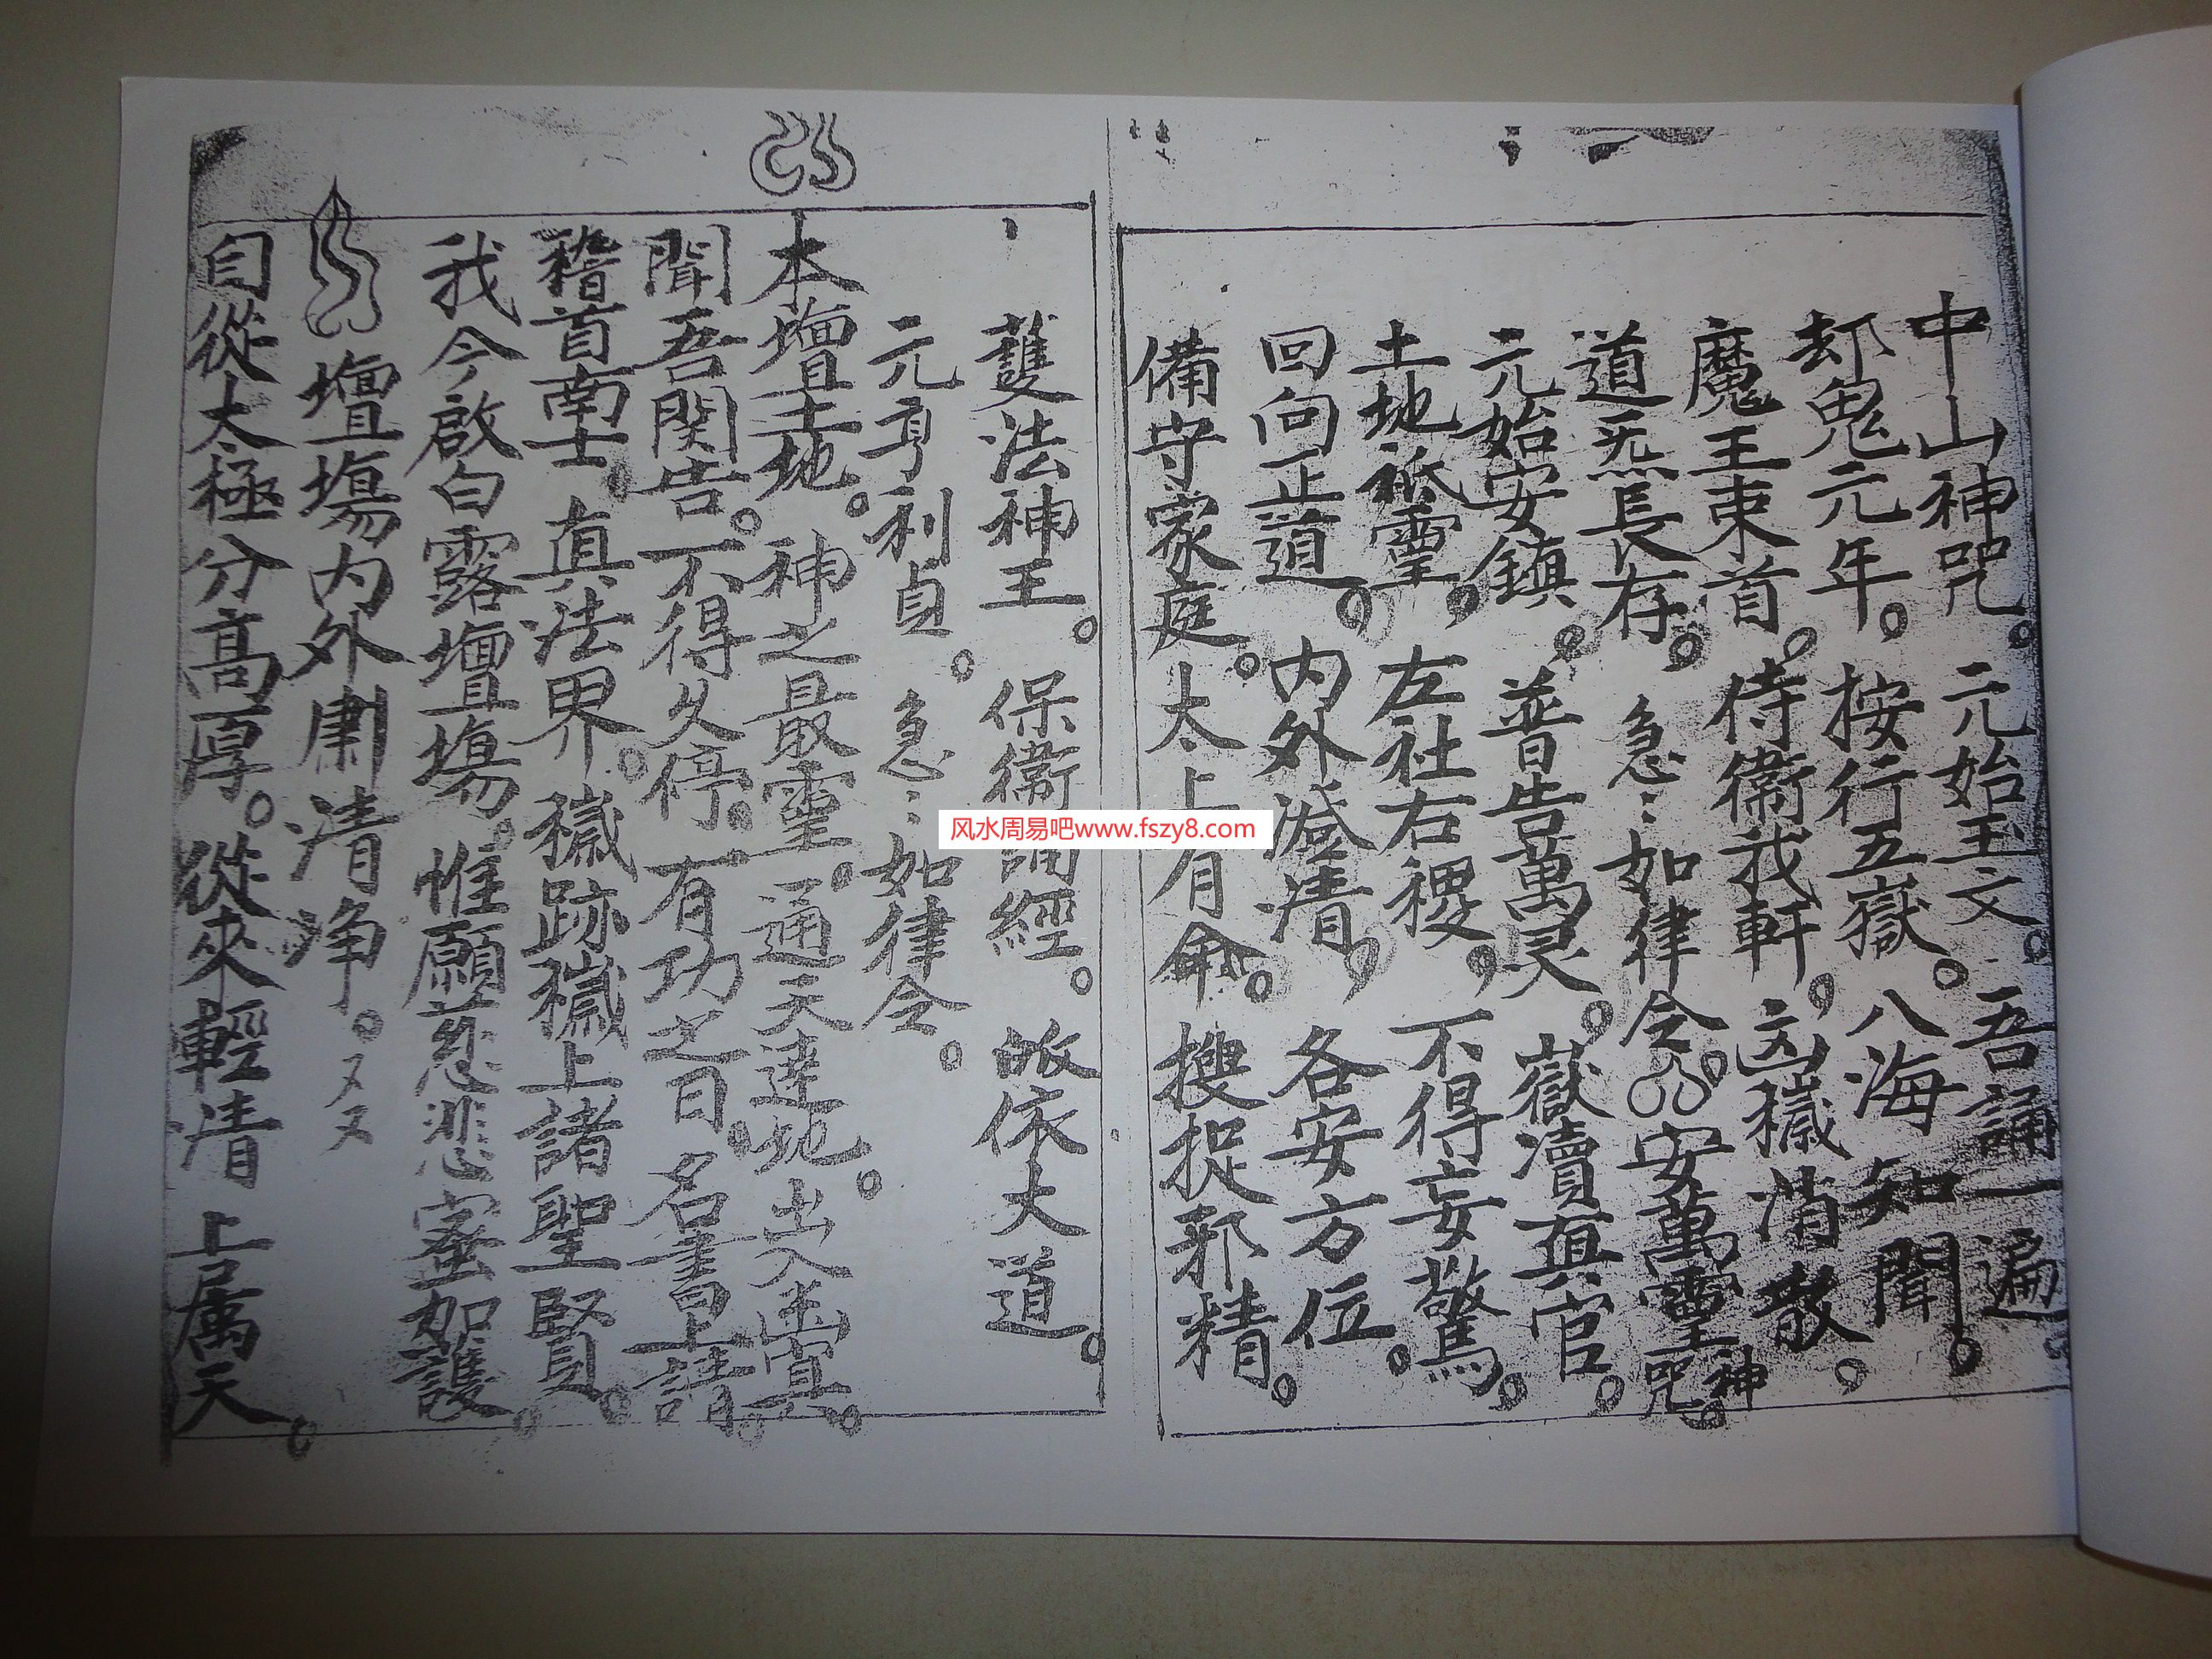 中山神咒。元始玉文。吾誦一遍。
却鬼元年。按行五嶽。八海知聞。
魔王束首。侍衛我軒。凶穢消散。
道炁長存。急〻如律令。安萬靈神咒。
元始安鎮。普告萬灵。嶽瀆真官。
土地祇靈。左社右稷。不得妄驚。
回向正道。内外澄清。各安方位。
備守家庭。太上有命。搜捉邪精。
護法神王。保衛誦經。皈依大道。
元亨利貞。急〻如律令。
本壇土地。神之最靈。通天達地。出入幽冥。
聞吾関告。不得久停。有功之日。名書上請。
稽首南士。真法界。穢跡穢上諸聖賢。
我今啟白露壇場。惟願慈悲密加護。
壇場内外肅清净。又又
自從太極分高厚。從來輕清上属天。
风水周易吧www.fszy8.com